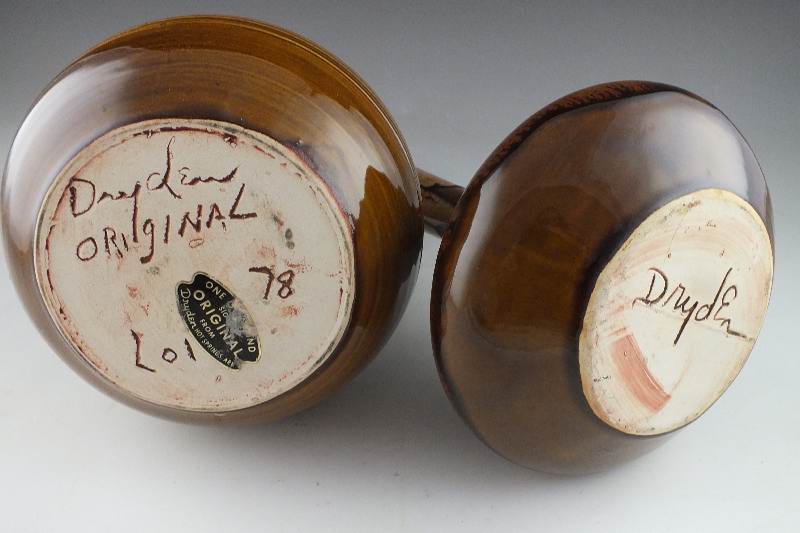 Dryden
ORIGINAL
78
ONE
KIND
ORIGINAL
FROM
Dryden
HOT SPRINGS, ARK
Dryden